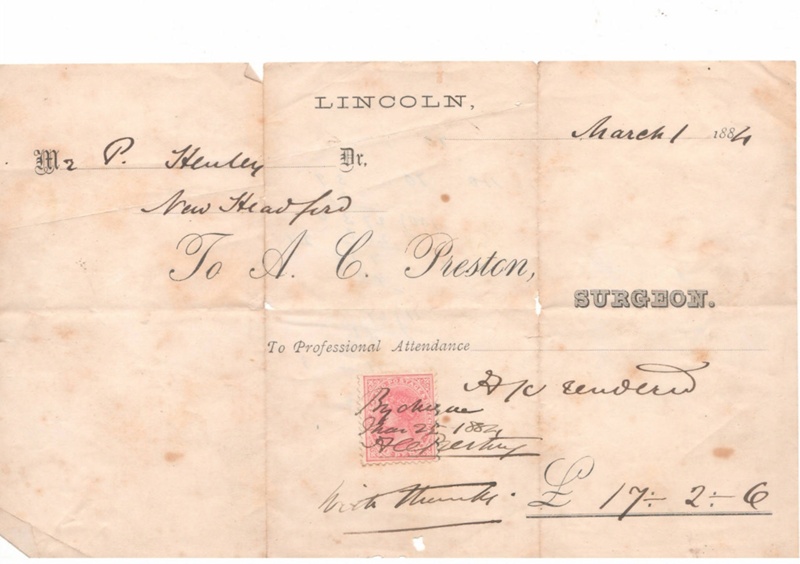 LINCOLN,
March 1 1884
Mr P. Henley Dr.
New Headford
To A. C. Preston,
SURGEON.
To Professional Attendance
A/c rendered
By cheque
Mar 1884
A C Preston
With thanks. £ 17 - 2 - 6